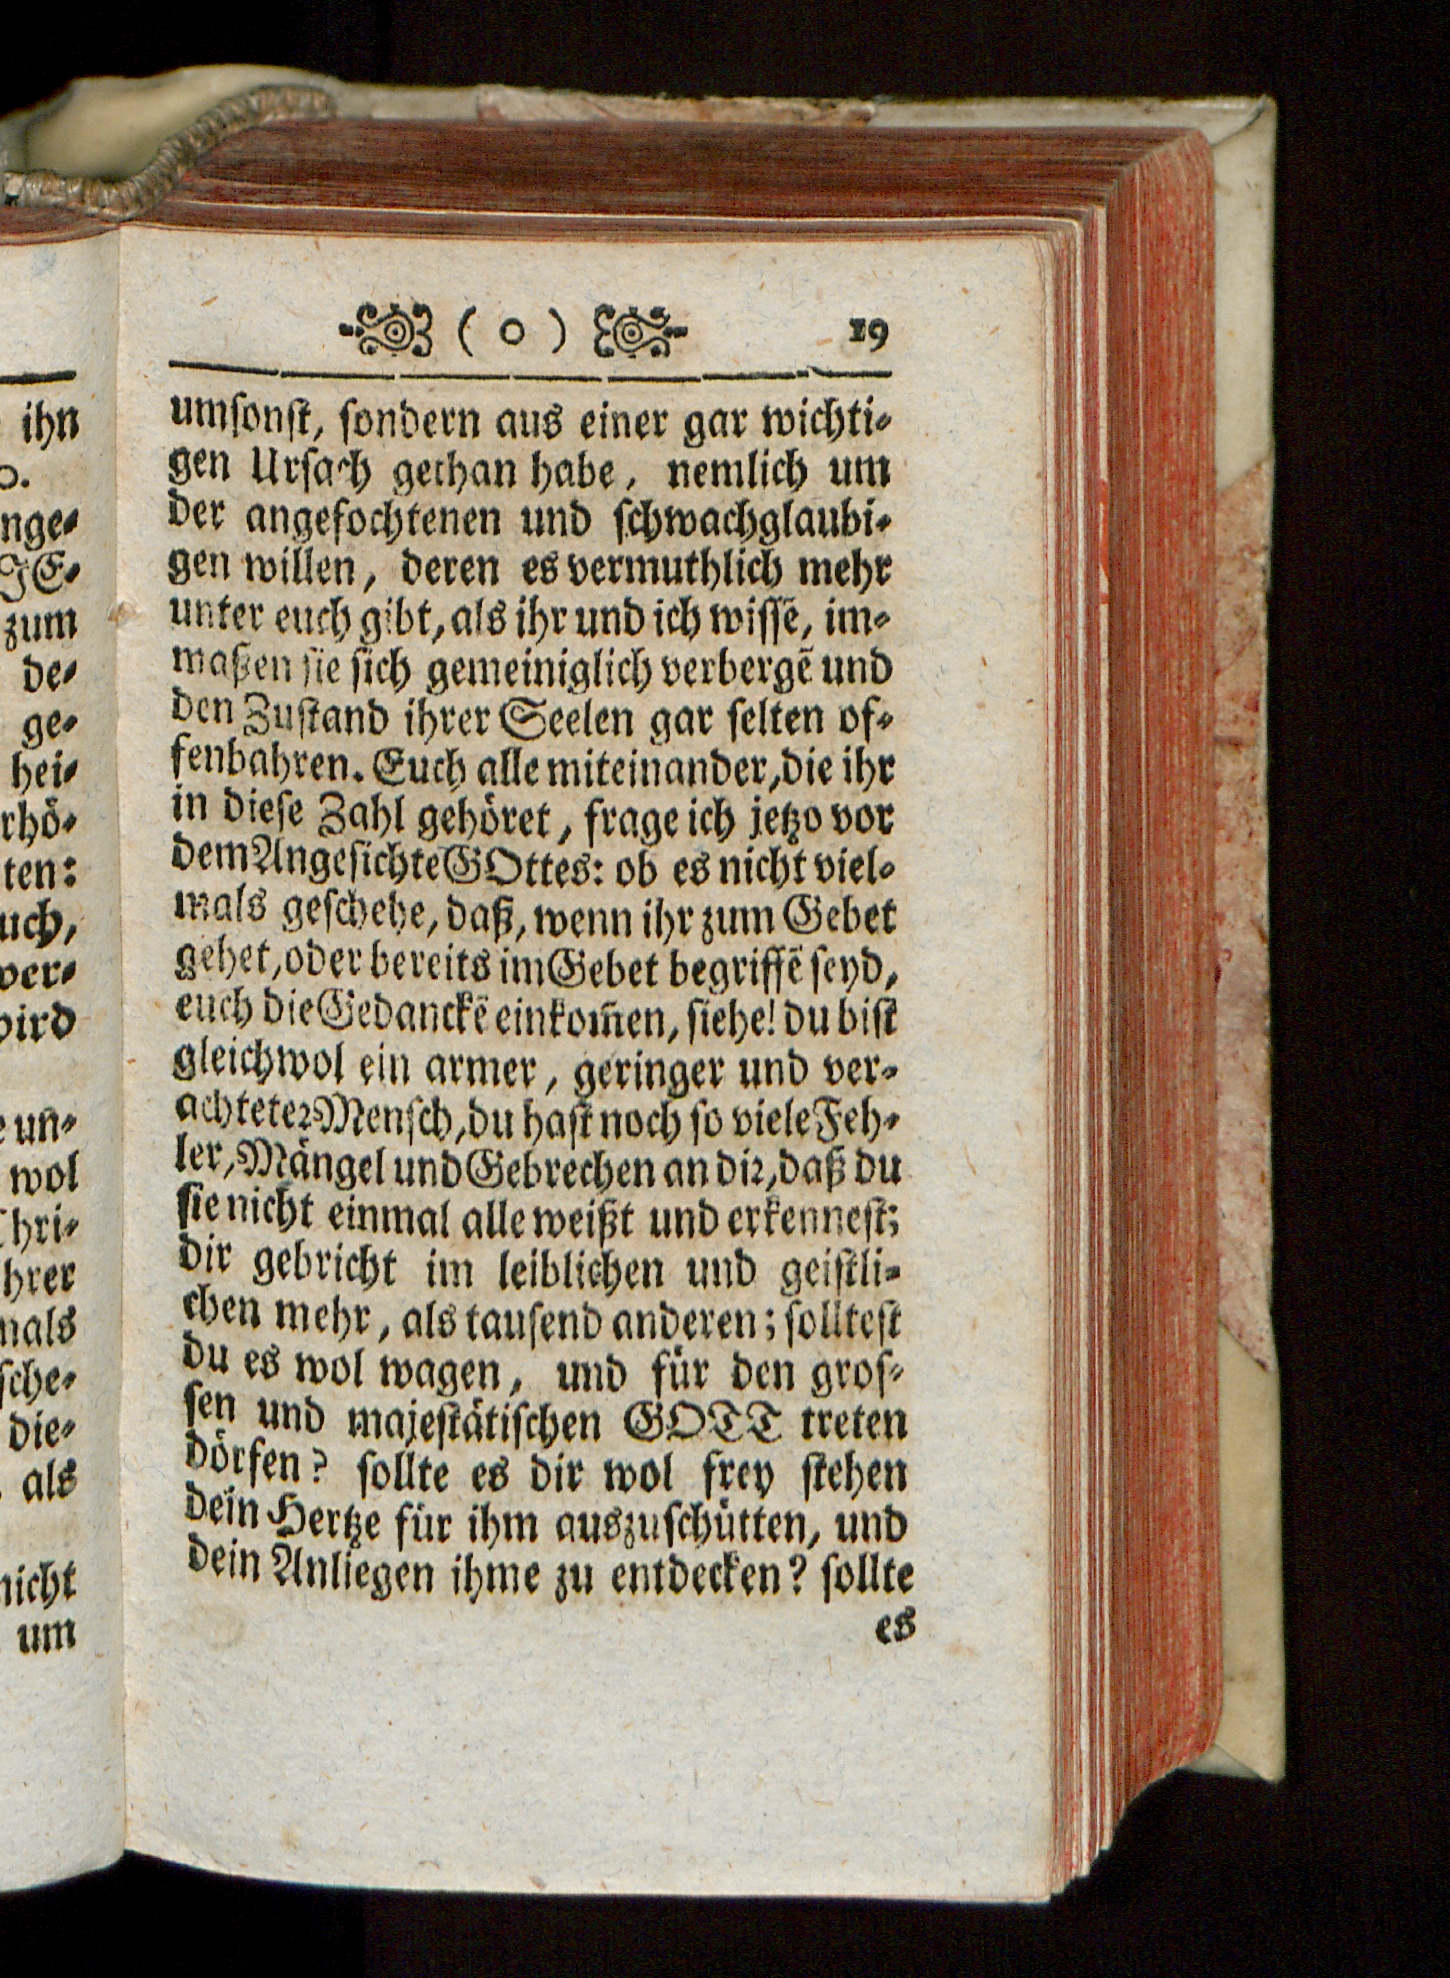 ( o ) 19
umſonſt, ſondern aus einer gar wichti⸗
gen Urſach gethan habe, nemlich um
der angefochtenen und ſchwachglaubi⸗
gen willen, deren es vermuthlich mehr
unter euch gibt, als ihr und ich wiſſẽ, im⸗
maßen ſie ſich gemeiniglich verbergẽ und
den Zuſtand ihrer Seelen gar ſelten of⸗
fenbahren. Euch alle miteinander, die ihr
in dieſe Zahl gehöret, frage ich jetzo vor
dem Angeſichte GOttes: ob es nicht viel⸗
mals geſchehe, daß, wenn ihr zum Gebet
gehet, oder bereits im Gebet begriffẽ ſeyd,
euch die Gedanckẽ einkom̃en, ſiehe! du biſt
gleichwol ein armer, geringer und ver⸗
achteteꝛ Menſch, du haſt noch ſo viele Feh⸗
ler, Mängel und Gebrechen an diꝛ, daß du
ſie nicht einmal alle weißt und erkenneſt;
dir gebricht im leiblichen und geiſtli⸗
chen mehr, als tauſend anderen; ſollteſt
du es wol wagen, und für den groſ⸗
ſen und majeſtätiſchen GOTT treten
dörfen? ſollte es dir wol frey ſtehen
dein Hertze für ihm auszuſchütten, und
dein Anliegen ihme zu entdecken? ſollte
es
ihn
nge⸗
JE⸗
zum
de⸗
ge⸗
hei⸗
rhö⸗
ten:
uch,
ver⸗
wird
un⸗
wol
Chri⸗
hrer
mals
ſche⸗
die⸗
als
nicht
um